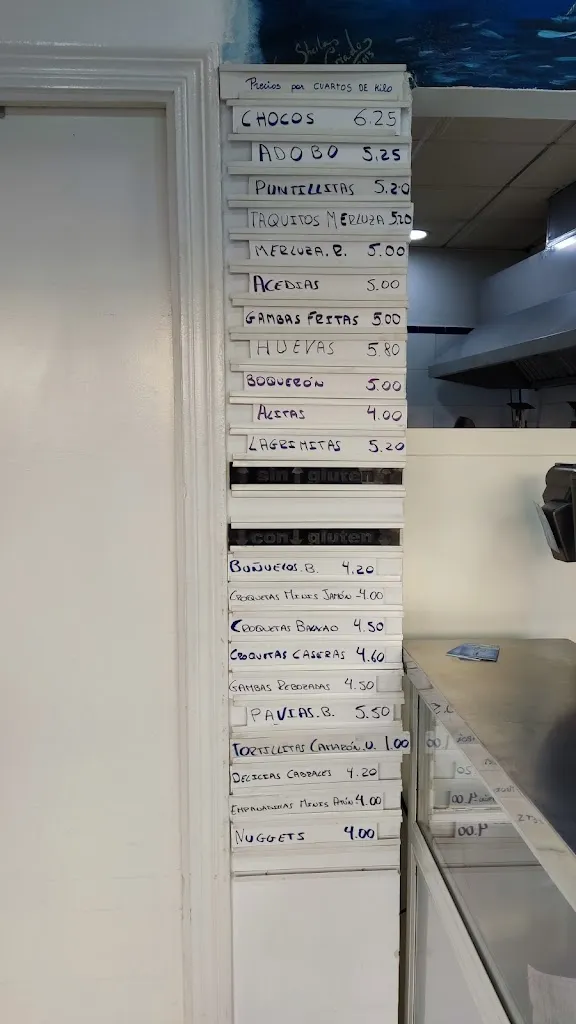 Precios por CUARTOS DE Kilo
CHOCOS 6.25
ADOBO 5.25
PUNTILLITAS 5.20
TAQUITOS MERLUZA 5.20
MERLUZA.R. 5.00
ACEDIAS 5.00
GAMBAS FRITAS 5.00
HUEVAS 5.80
BOQUERÓN 5.00
ALITAS 4.00
LAGRIMITAS 5.20
↑ sin ↑ gluten ↑
↓ con ↓ gluten ↓
BUÑUELOS.B. 4.20
CROQUETAS MINIS JAMÓN -4.00
CROQUETAS BACALAO 4.50
CROQUETAS CASERAS 4.60
GAMBAS REBOZADAS 4.50
PAVIAS.B. 5.50
TORTILLITAS CAMARÓN.U. 1.00
DELICIAS CABRALES 4.20
EMPANADILLAS MINIS ATÚN 4.00
NUGGETS 4.00